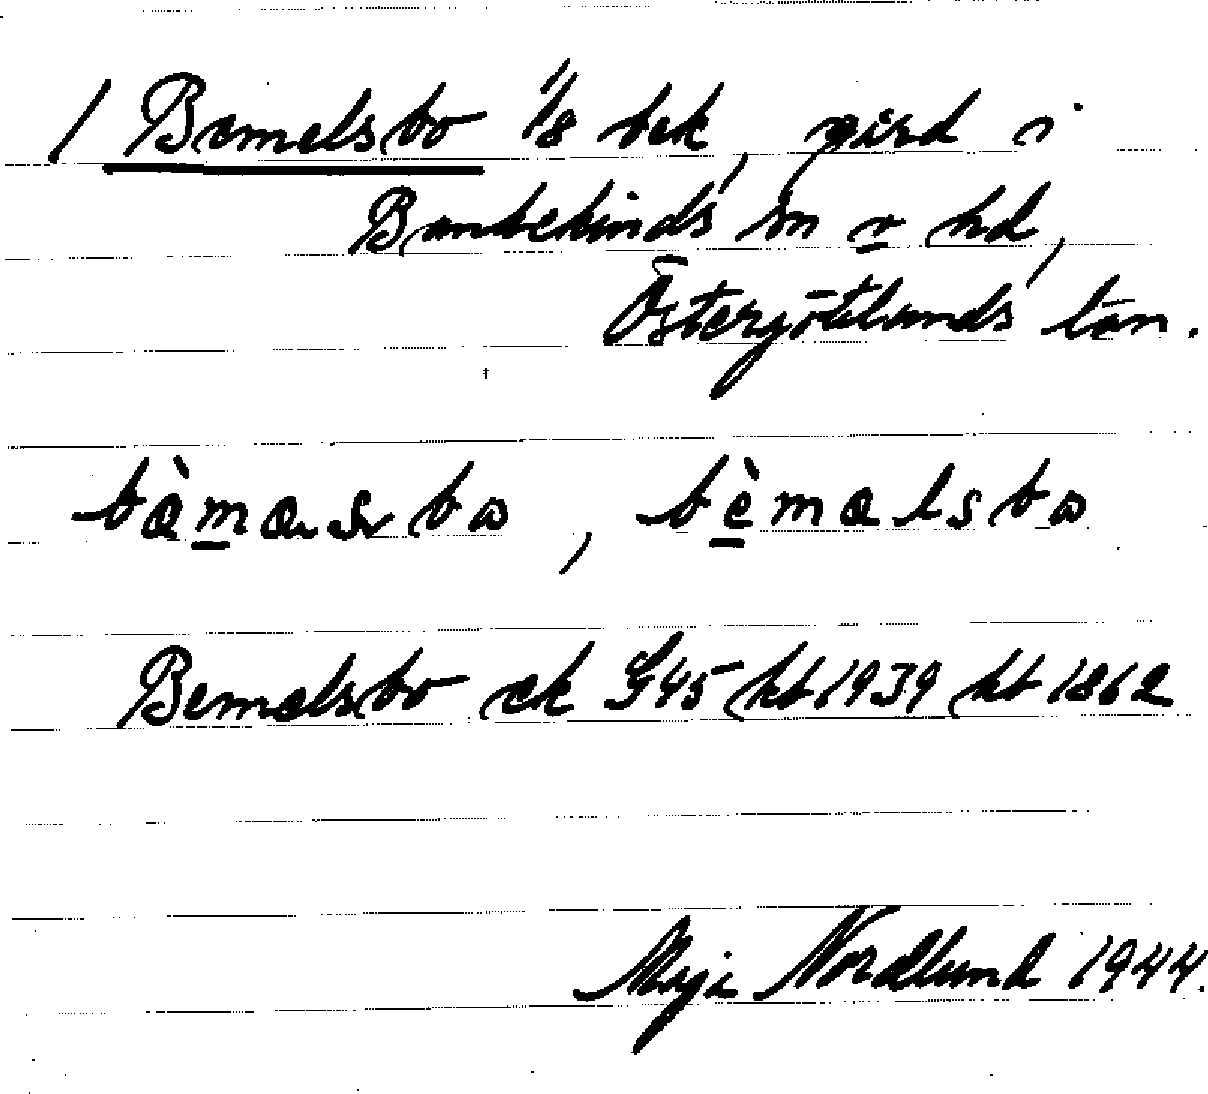 / Bemelsbo 1/8 bek, gård i
Bankekinds sn o hd,
Östergötlands län.
bæ̀mæsbω, bèmælsbω
Bemelsbo ek G45 kb 1939 hb 1862
Maja Nordlund 1944.